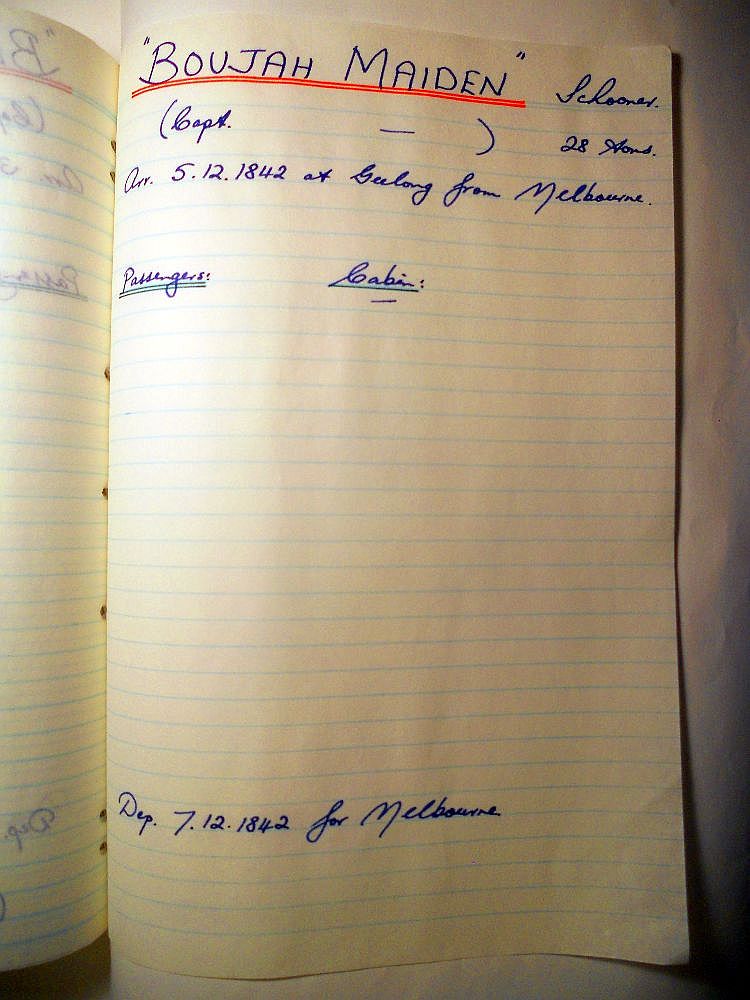 "BOUJAH MAIDEN" Schooner.
(Capt. — ) 28 tons.
Arr. 5.12.1842 at Geelong from Melbourne.
Passengers: Cabin:
—
Dep. 7.12.1842 for Melbourne